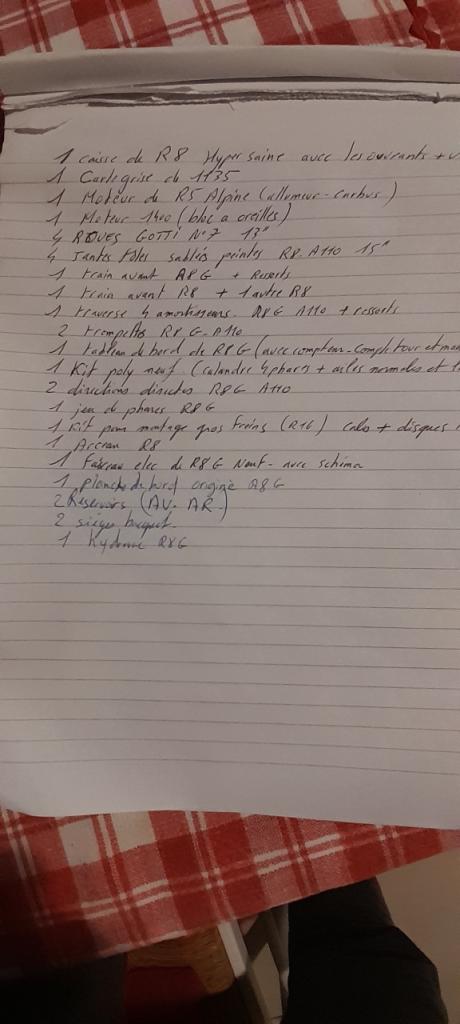 1 caisse de R8 Hyper saine avec les ouvrants +
1 Carte grise de 1135
1 Moteur de R5 Alpine (allumeur - carbus)
1 Moteur 1400 (bloc a oreilles)
4 ROUES GOTTI N°7 13"
4 Jantes tôles sablées peintes R8. A110 15"
1 train avant R8G + Ressorts
1 train avant R8 + 1 autre R8
1 traverse 4 amortisseurs R8G A110 + ressorts
2 trompettes R8G - A110
1 tableau de bord de R8G (avec compteur - Compte tour et
1 Kit poly neuf (calandre 4 phares + ailes normales et
2 directions directes R8G A110
1 jeu de phares R8G
1 Kit pour montage gros freins (R16) Cales + disques
1 Arceau R8
1 faisceau elec de R8G Neuf - avec schéma
1 planche de bord origine R8G
2 Réservoirs (AV. AR.)
2 sièges baquet.
1 R8G